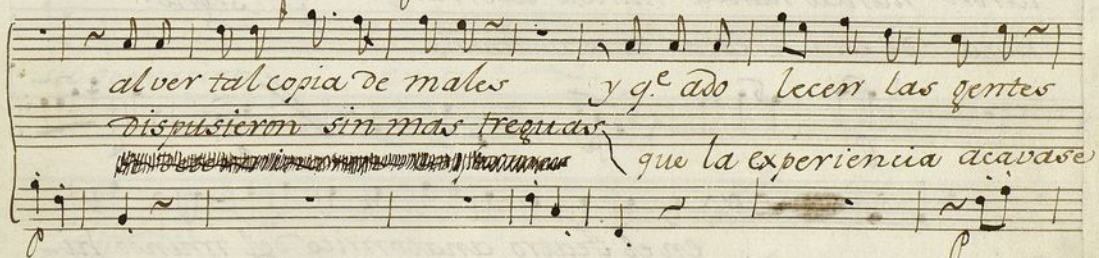 al ver tal copia de males y q.e ado lecen las gentes
dispusieron sin mas treguas
que la experiencia acavase
p p